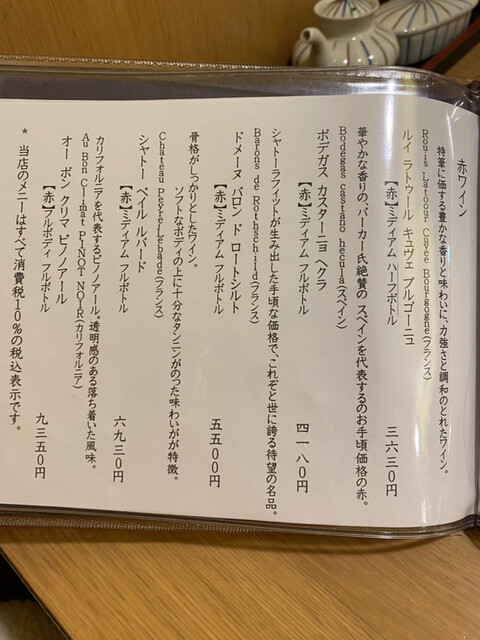 赤ワイン
特筆に価する豊かな香りと味わいに、力強さと調和のとれたワイン。
Rouis Latoour Cuvee Bourgogne(フランス)
ルイ ラトゥール キュヴェ ブルゴーニュ
【赤】ミディアム ハーフボトル 三六三〇円
華やかな香りの、パーカー氏絶賛の スペインを代表するのお手頃価格の赤。
Bodegas castano hecula(スペイン)
ボデガス カスターニョ ヘクラ
【赤】ミディアム フルボトル 四一八〇円
シャトーラフィットが生み出した手頃な価格で、これぞと世に誇る待望の名品。
Barons de Rothschild(フランス)
ドメーヌ バロン ド ロートシルト
【赤】ミディアム フルボトル 五五〇〇円
骨格がしっかりとしたワイン。
ソフトなボディの上に十分なタンニンがのった味わいがが特徴。
Chateau PeyreLebade(フランス)
シャトー ペイル ルバード
【赤】ミディアム フルボトル 六九三〇円
カリフォルニアを代表するピノノアール。透明感のある落ち着いた風味。
Au Bon Climat PINOT NOIR(カリフォルニア)
オー ボン クリマ ピノノアール
【赤】フルボディ フルボトル 九三五〇円
* 当店のメニューはすべて消費税10%の税込表示です。